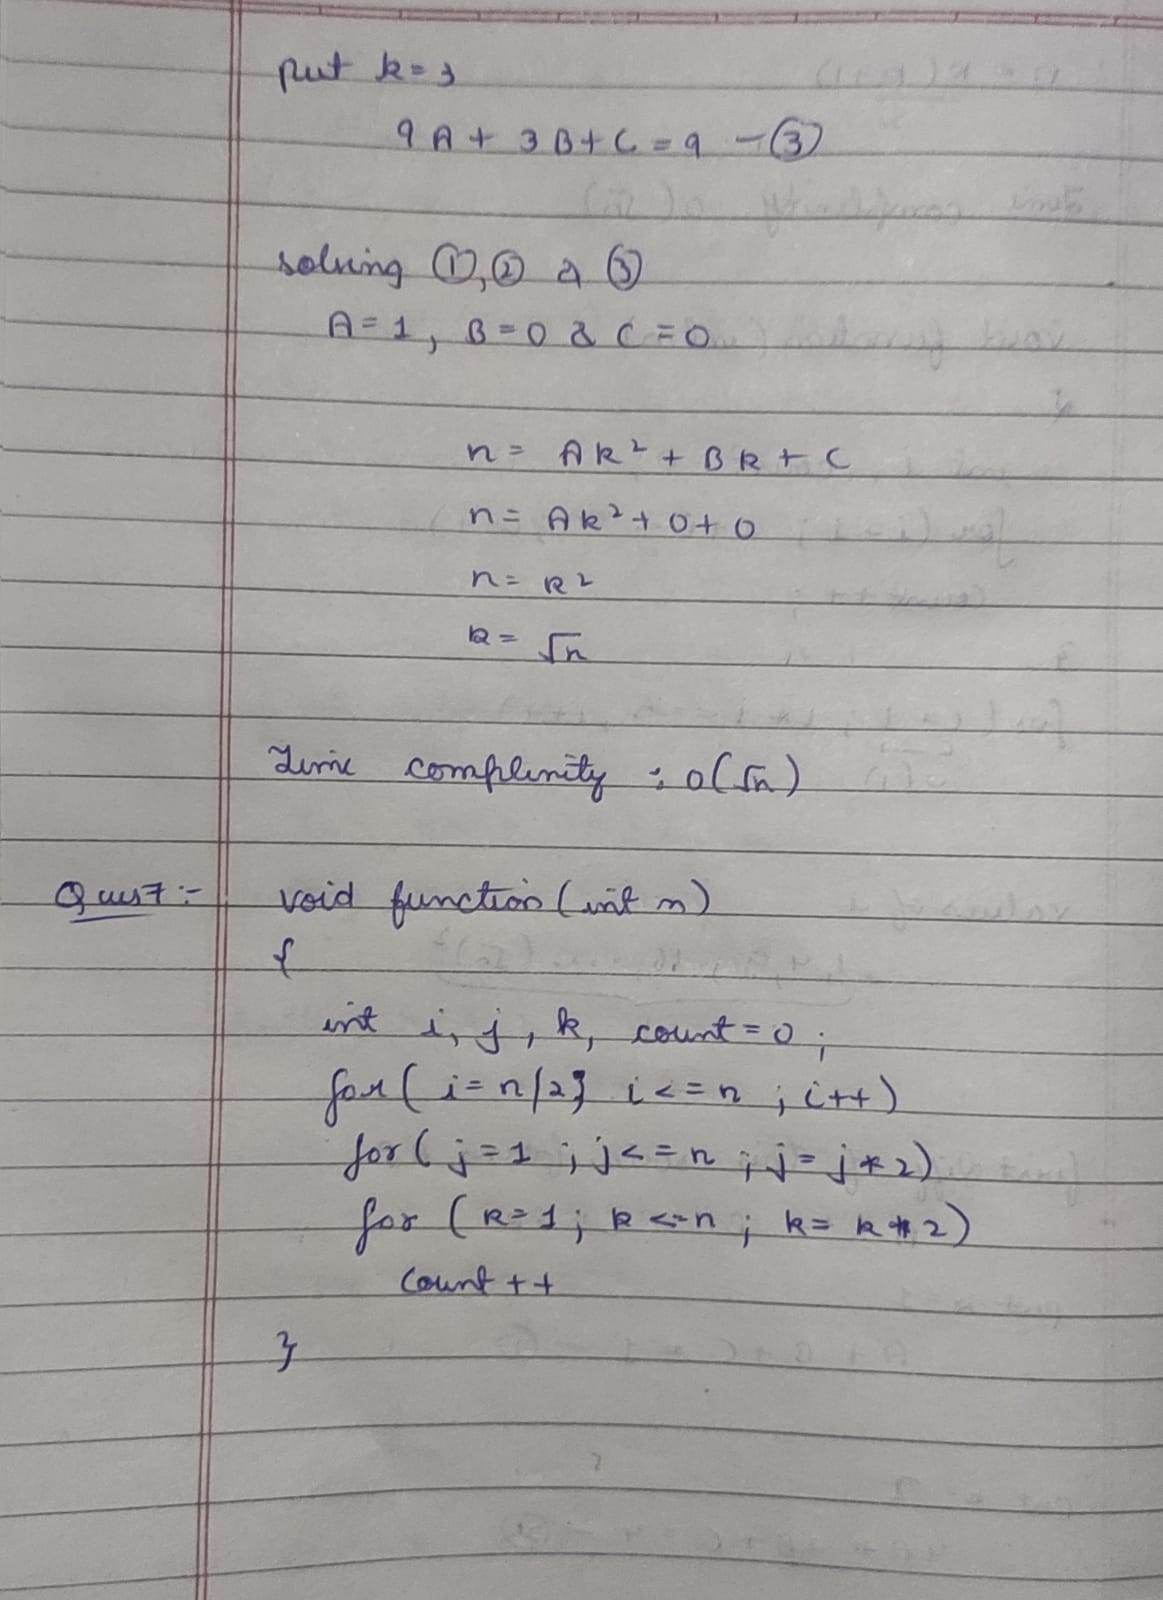 put k=3
9A + 3B+C=9 -③
solving ①,② & ③
A=1, B=0 & C=0
n= Ak² + Bk + C
n= Ak²+0+0
n= k²
k= √n
Time complenity : O(√n)
Ques7:- void function (int n)
{
int i, j, k, count=0;
for( i=n/2; i<=n ; i++)
for( j=1 ; j<=n ; j=j*2)
for (k=1; k<=n ; k= k*2)
count ++
}